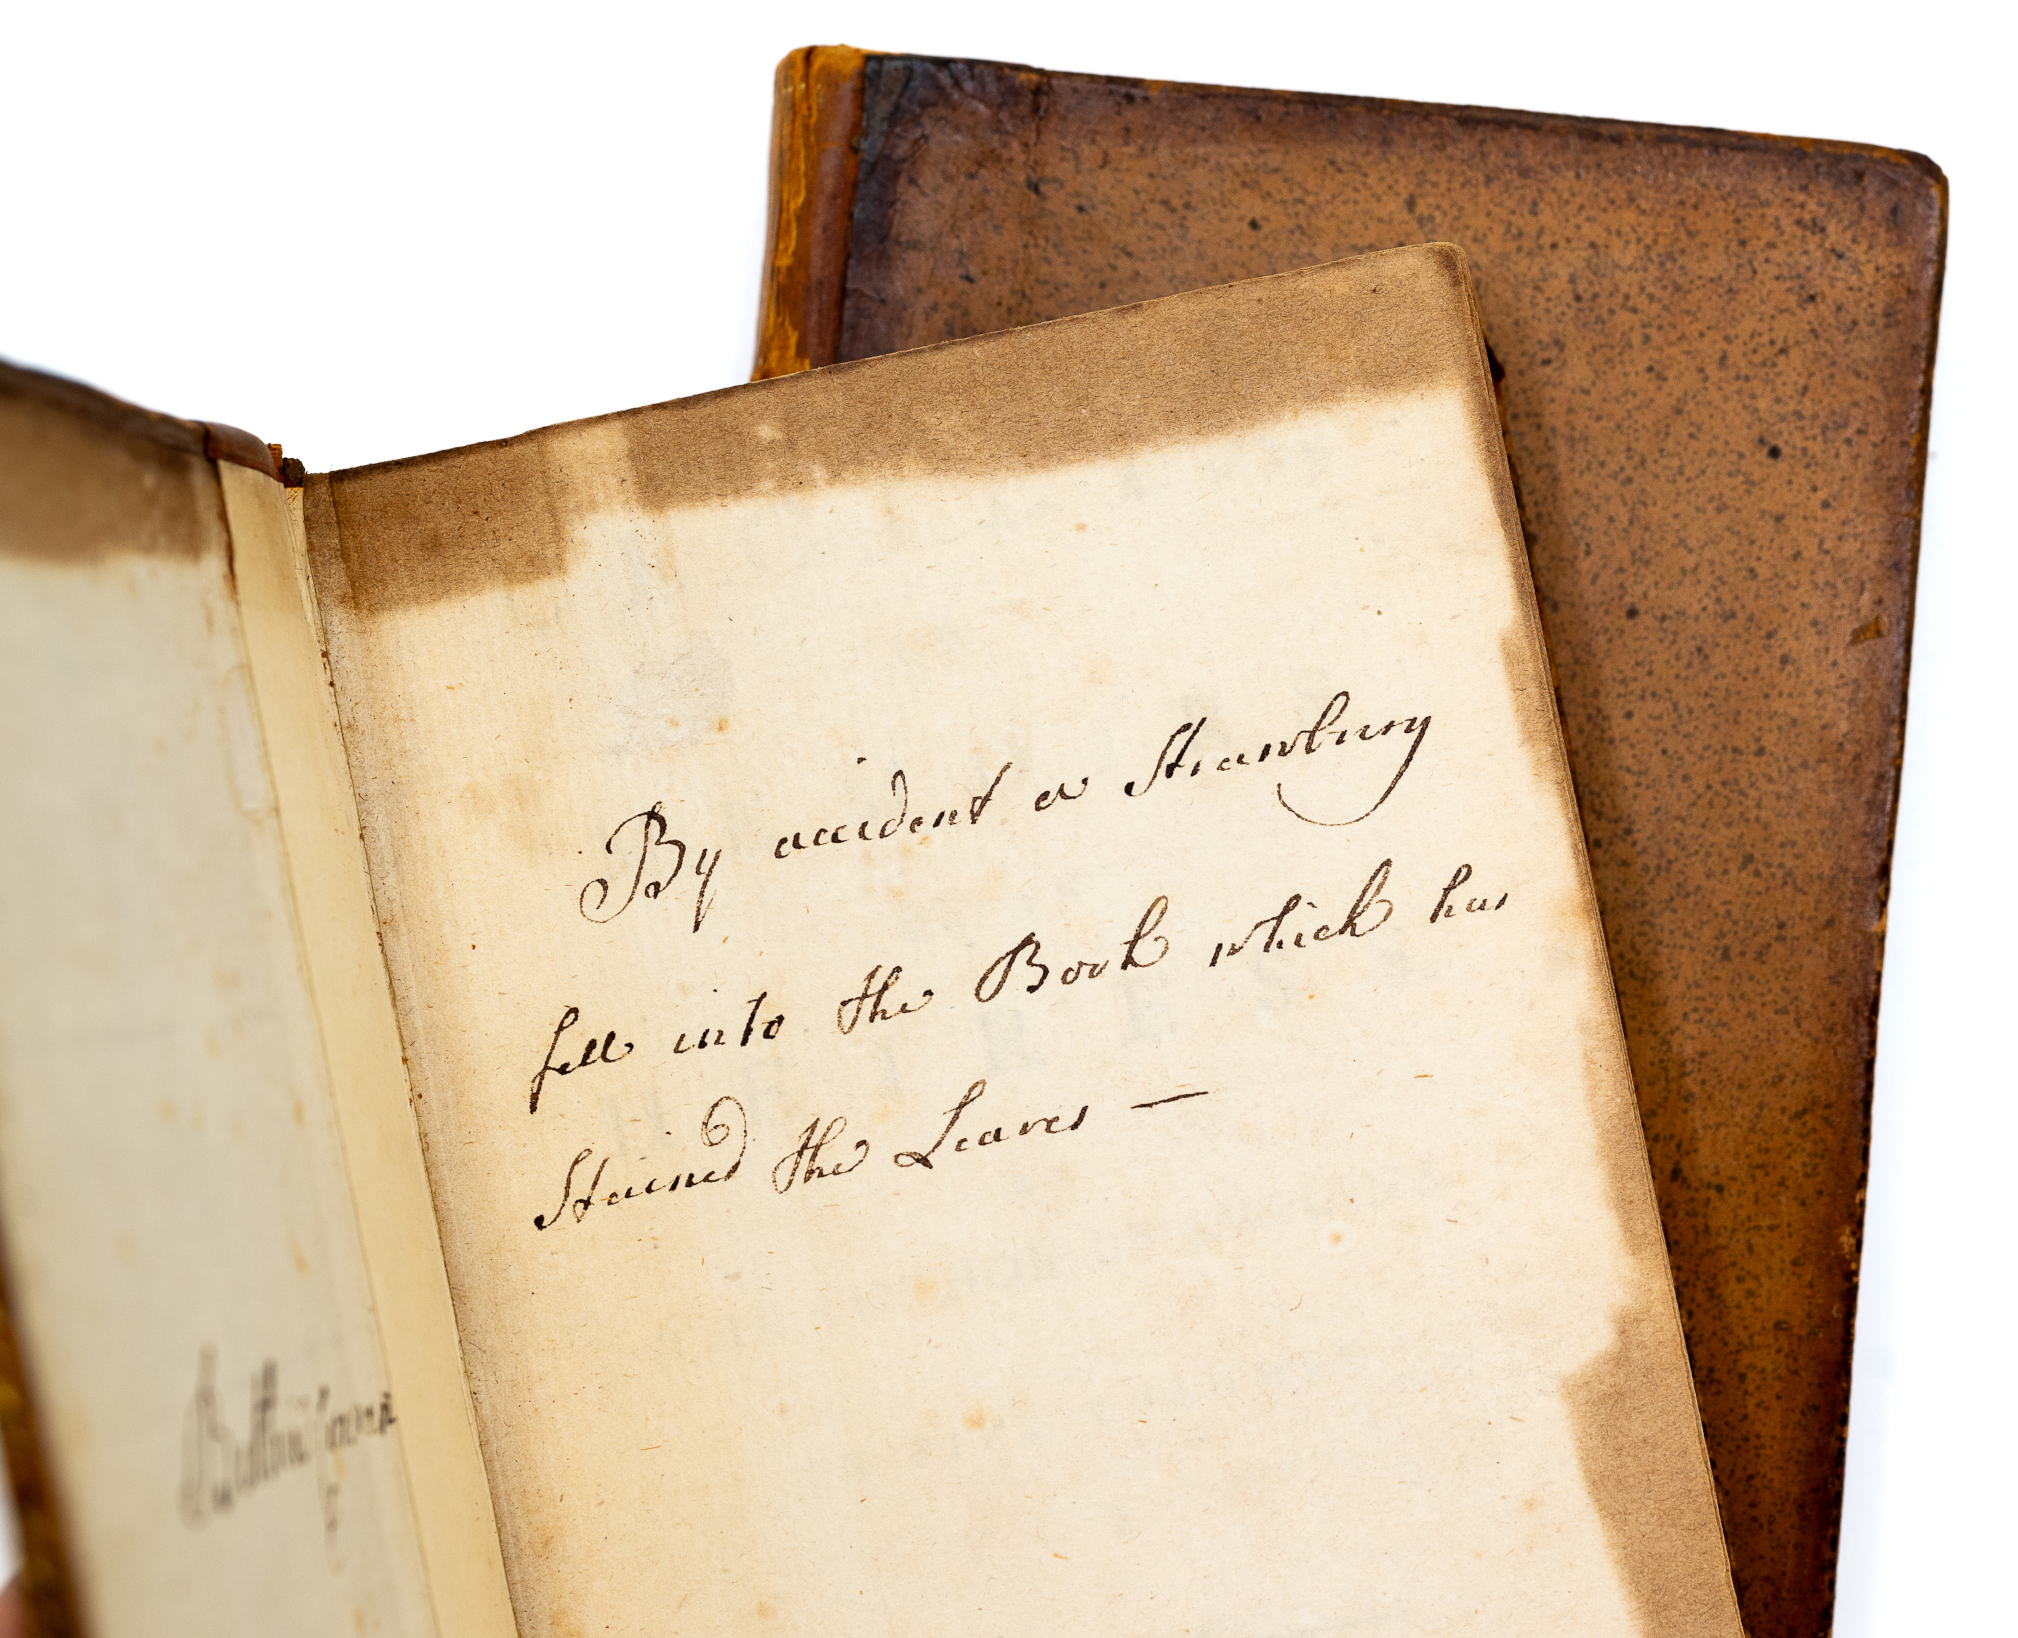 By accident a Strawbury
fell into the Book which has
Stained the Leaves —